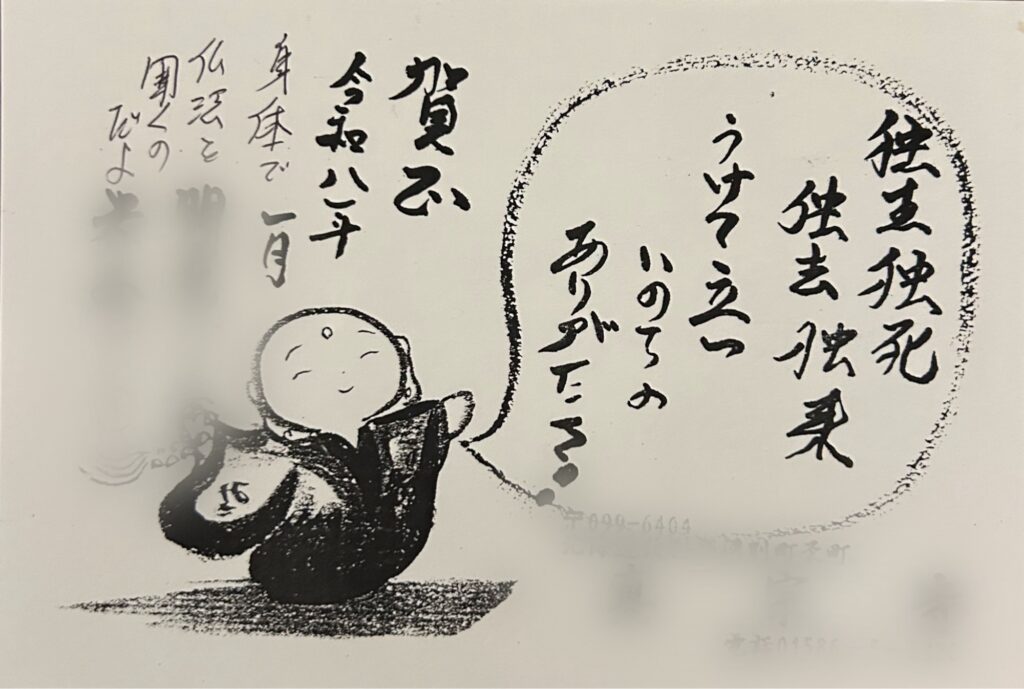 独生独死
独去独来
うけて立つ
いのちの
ありがたさ。
賀正
令和八年
一月
身体で
仏法を
聞くの
だよ
〒099-6404